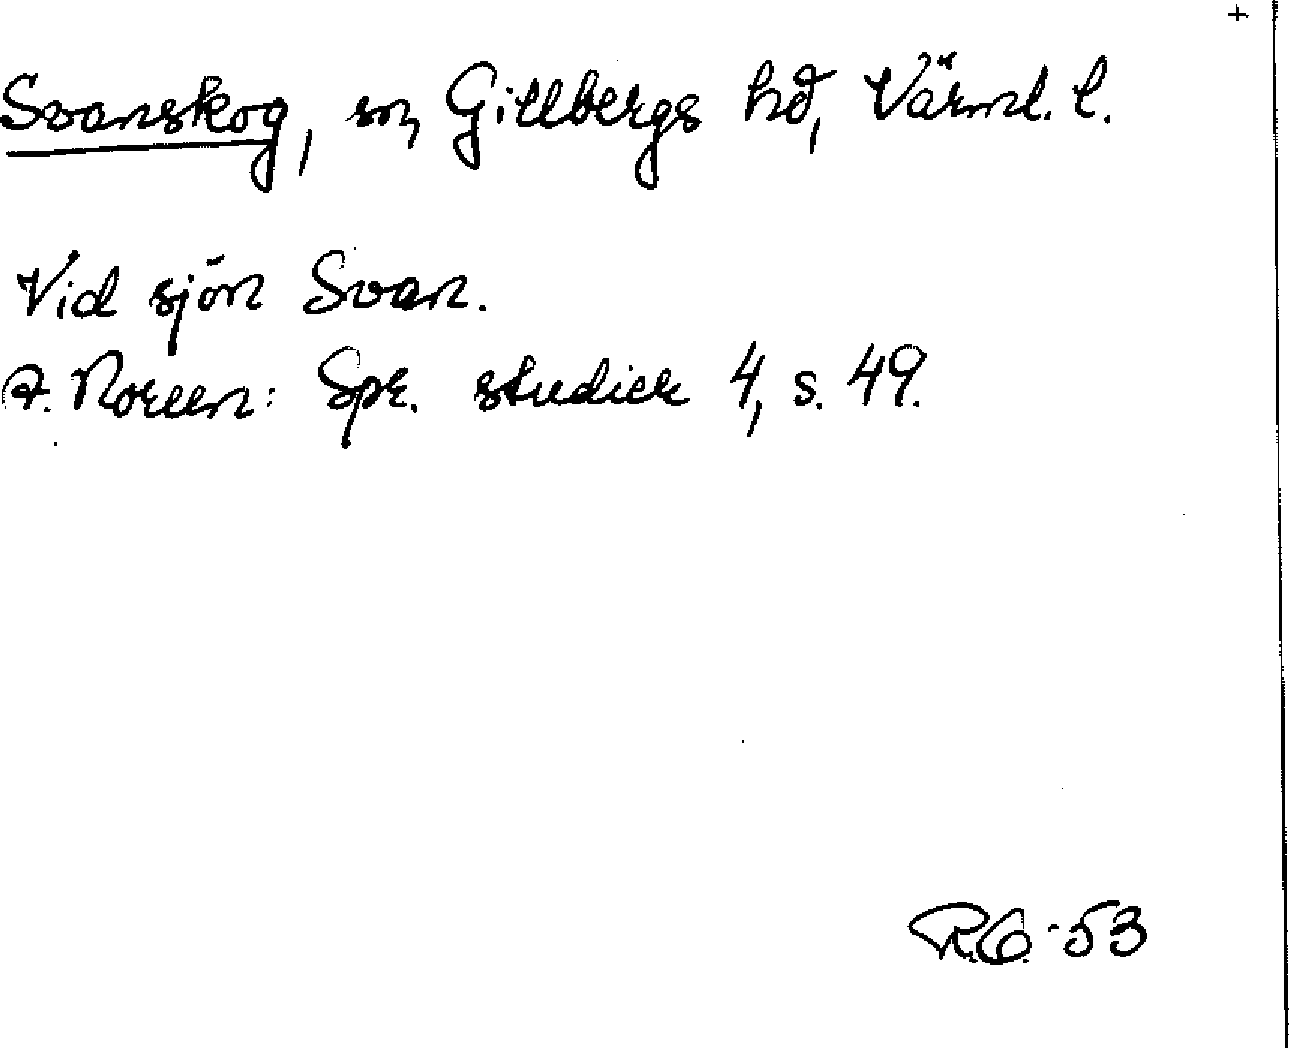 +
Svanskog, sn, Gillbergs hd, Värml. l.
Vid sjön Svan.
A. Noreen: Spr. studier 4, s. 49.
R.O. -53